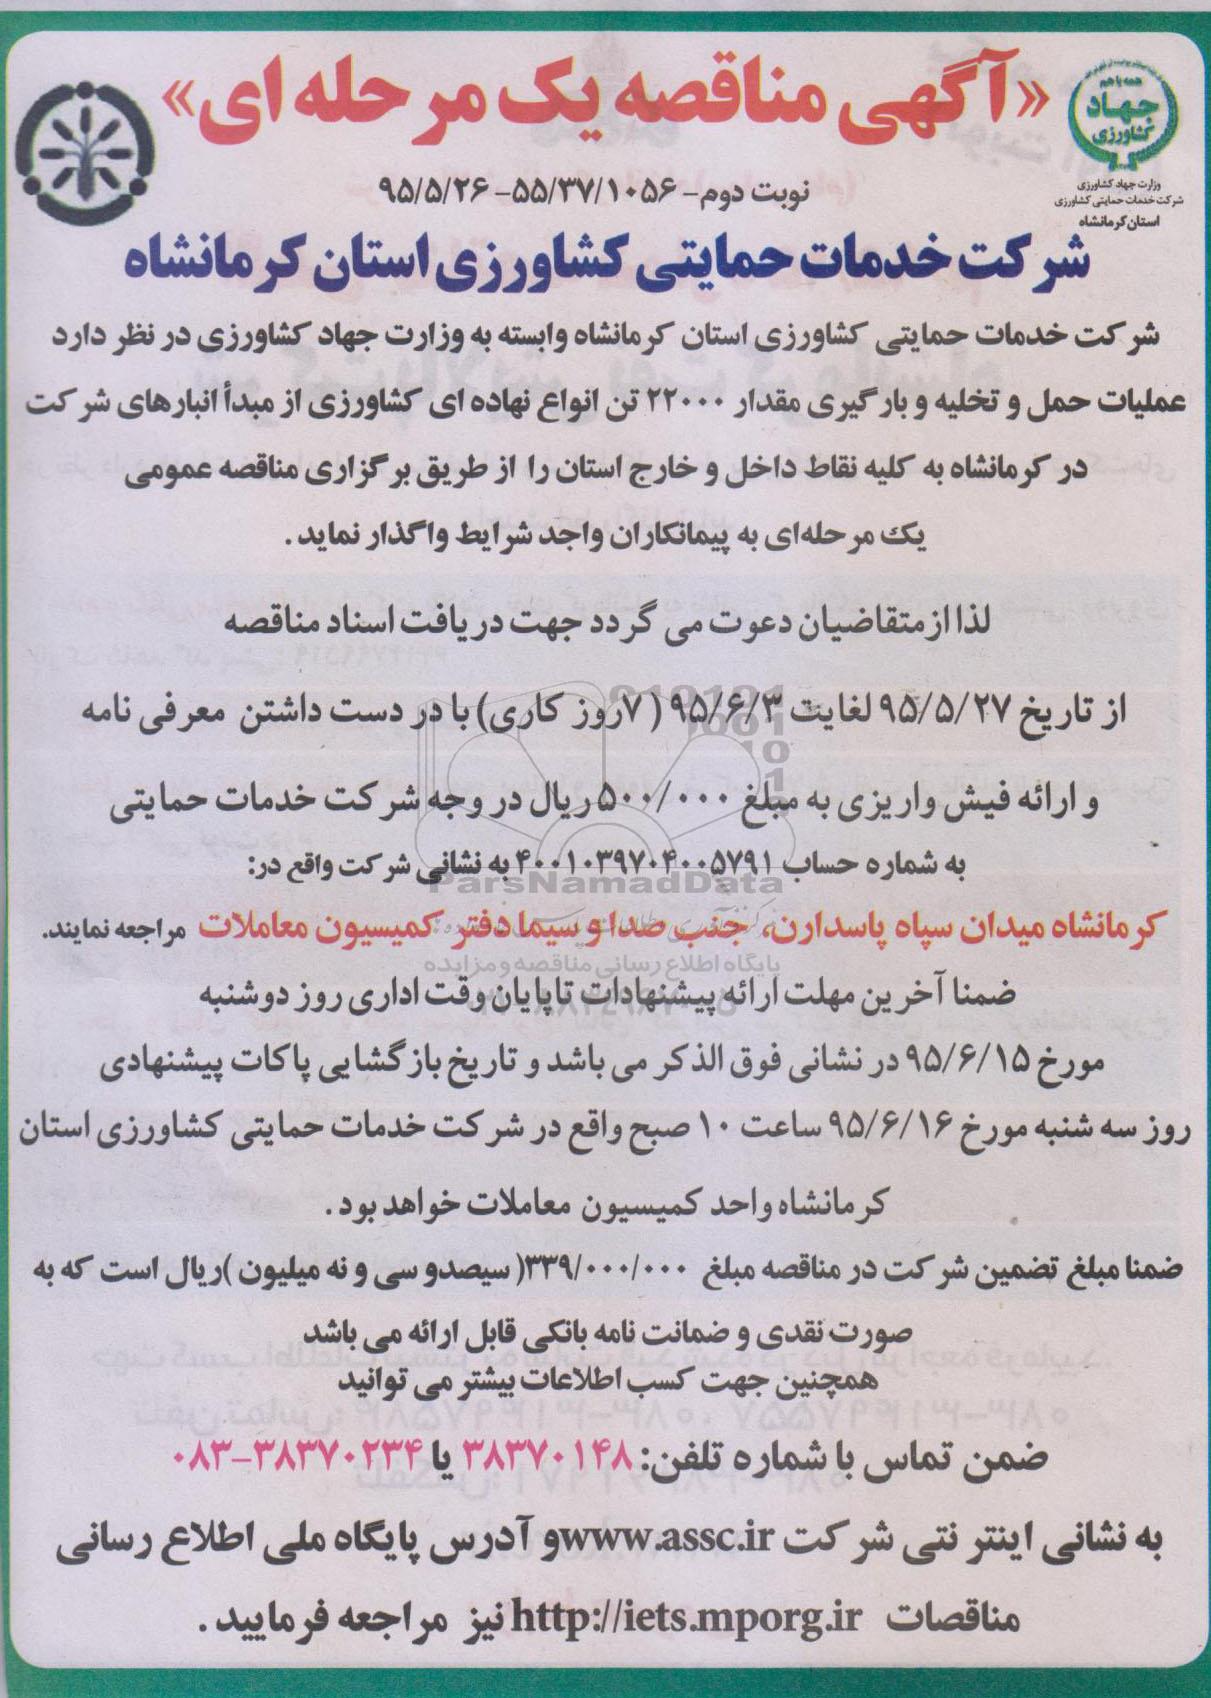 «آگهی مناقصه یک مرحله ای»
همه با هم
جهاد
کشاورزی
وزارت جهاد کشاورزی
شرکت خدمات حمایتی کشاورزی
استان کرمانشاه
نوبت دوم- ۵۵/۳۷/۱۰۵۶- ۹۵/۵/۲۶
شرکت خدمات حمایتی کشاورزی استان کرمانشاه
شرکت خدمات حمایتی کشاورزی استان کرمانشاه وابسته به وزارت جهاد کشاورزی در نظر دارد
عملیات حمل و تخلیه و بارگیری مقدار ۲۲۰۰۰ تن انواع نهاده ای کشاورزی از مبدأ انبارهای شرکت
در کرمانشاه به کلیه نقاط داخل و خارج استان را از طریق برگزاری مناقصه عمومی
یک مرحله‌ای به پیمانکاران واجد شرایط واگذار نماید.
لذا از متقاضیان دعوت می گردد جهت دریافت اسناد مناقصه
از تاریخ ۹۵/۵/۲۷ لغایت ۹۵/۶/۳ (۷روز کاری) با در دست داشتن معرفی نامه
و ارائه فیش واریزی به مبلغ ۵۰۰/۰۰۰ ریال در وجه شرکت خدمات حمایتی
به شماره حساب ۴۰۰۱۰۳۹۷۰۴۰۰۵۷۹۱ به نشانی شرکت واقع در:
ParsNamadData
کرمانشاه میدان سپاه پاسدارن، جنب صدا و سیما دفتر کمیسیون معاملات مراجعه نمایند.
پایگاه اطلاع رسانی مناقصه و مزایده
ضمنا آخرین مهلت ارائه پیشنهادات تا پایان وقت اداری روز دوشنبه
مورخ ۹۵/۶/۱۵ در نشانی فوق الذکر می باشد و تاریخ بازگشایی پاکات پیشنهادی
روز سه شنبه مورخ ۹۵/۶/۱۶ ساعت ۱۰ صبح واقع در شرکت خدمات حمایتی کشاورزی استان
کرمانشاه واحد کمیسیون معاملات خواهد بود.
ضمنا مبلغ تضمین شرکت در مناقصه مبلغ ۳۳۹/۰۰۰/۰۰۰( سیصدو سی و نه میلیون )ریال است که به
صورت نقدی و ضمانت نامه بانکی قابل ارائه می باشد
همچنین جهت کسب اطلاعات بیشتر می توانید
ضمن تماس با شماره تلفن: ۳۸۳۷۰۱۴۸ یا ۳۸۳۷۰۲۳۴-۰۸۳
به نشانی اینترنتی شرکت www.assc.ir و آدرس پایگاه ملی اطلاع رسانی
مناقصات http://iets.mporg.ir نیز مراجعه فرمایید.